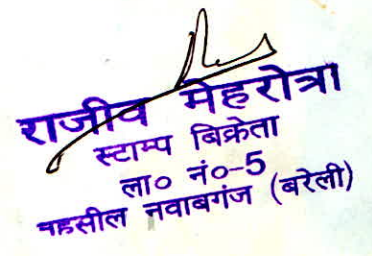 राजीव मेहरोत्रा
स्टाम्प बिक्रेता
ला० नं०-5
तहसील नवाबगंज (बरेली)